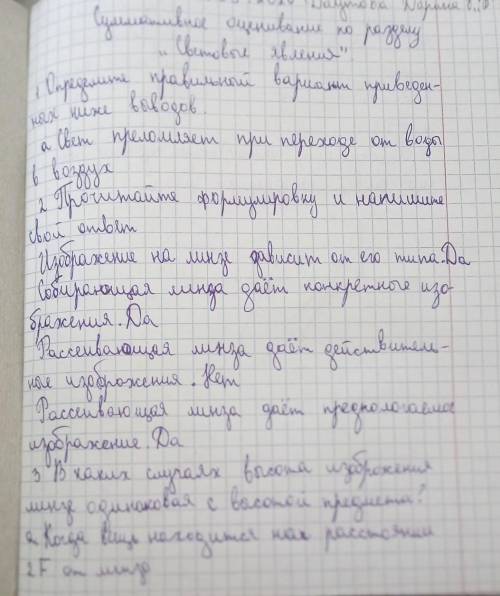 Даутова Карина
Суммативное оценивание по разделу
"Световые явления"
1 Определите правильный вариант приведен-
ных ниже выводов.
а Свет преломляет при переходе от воды
в воздух
2 Прочитайте формулировку и напишите
свой ответ
Изображение на линзе зависит от его типа. Да
Собирающая линза даёт конкретные изо-
бражения. Да
Рассеивающая линза даёт действитель-
ное изображения. Нет
Рассеивающая линза даёт предпологаемое
изображение. Да
3 В каких случаях высота изображения
линзе одинаковая с высотой предмета?
а Когда вещь находится на расстоянии
2F от линзе